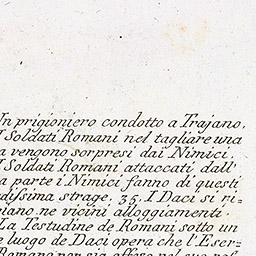 Un prigioniero condotto a Trajano.
I Soldati Romani nel tagliare una
a vengono sorpresi dai Nimici.
I Soldati Romani attaccati dall'
a parte i Nimici fanno di questi
dissima strage. 35. I Daci si ri-
iano ne vicini alloggiamenti.
La Testudine de Romani sotto un
e luogo de Daci opera che l'Eser-
Romano non sia offeso nel suo